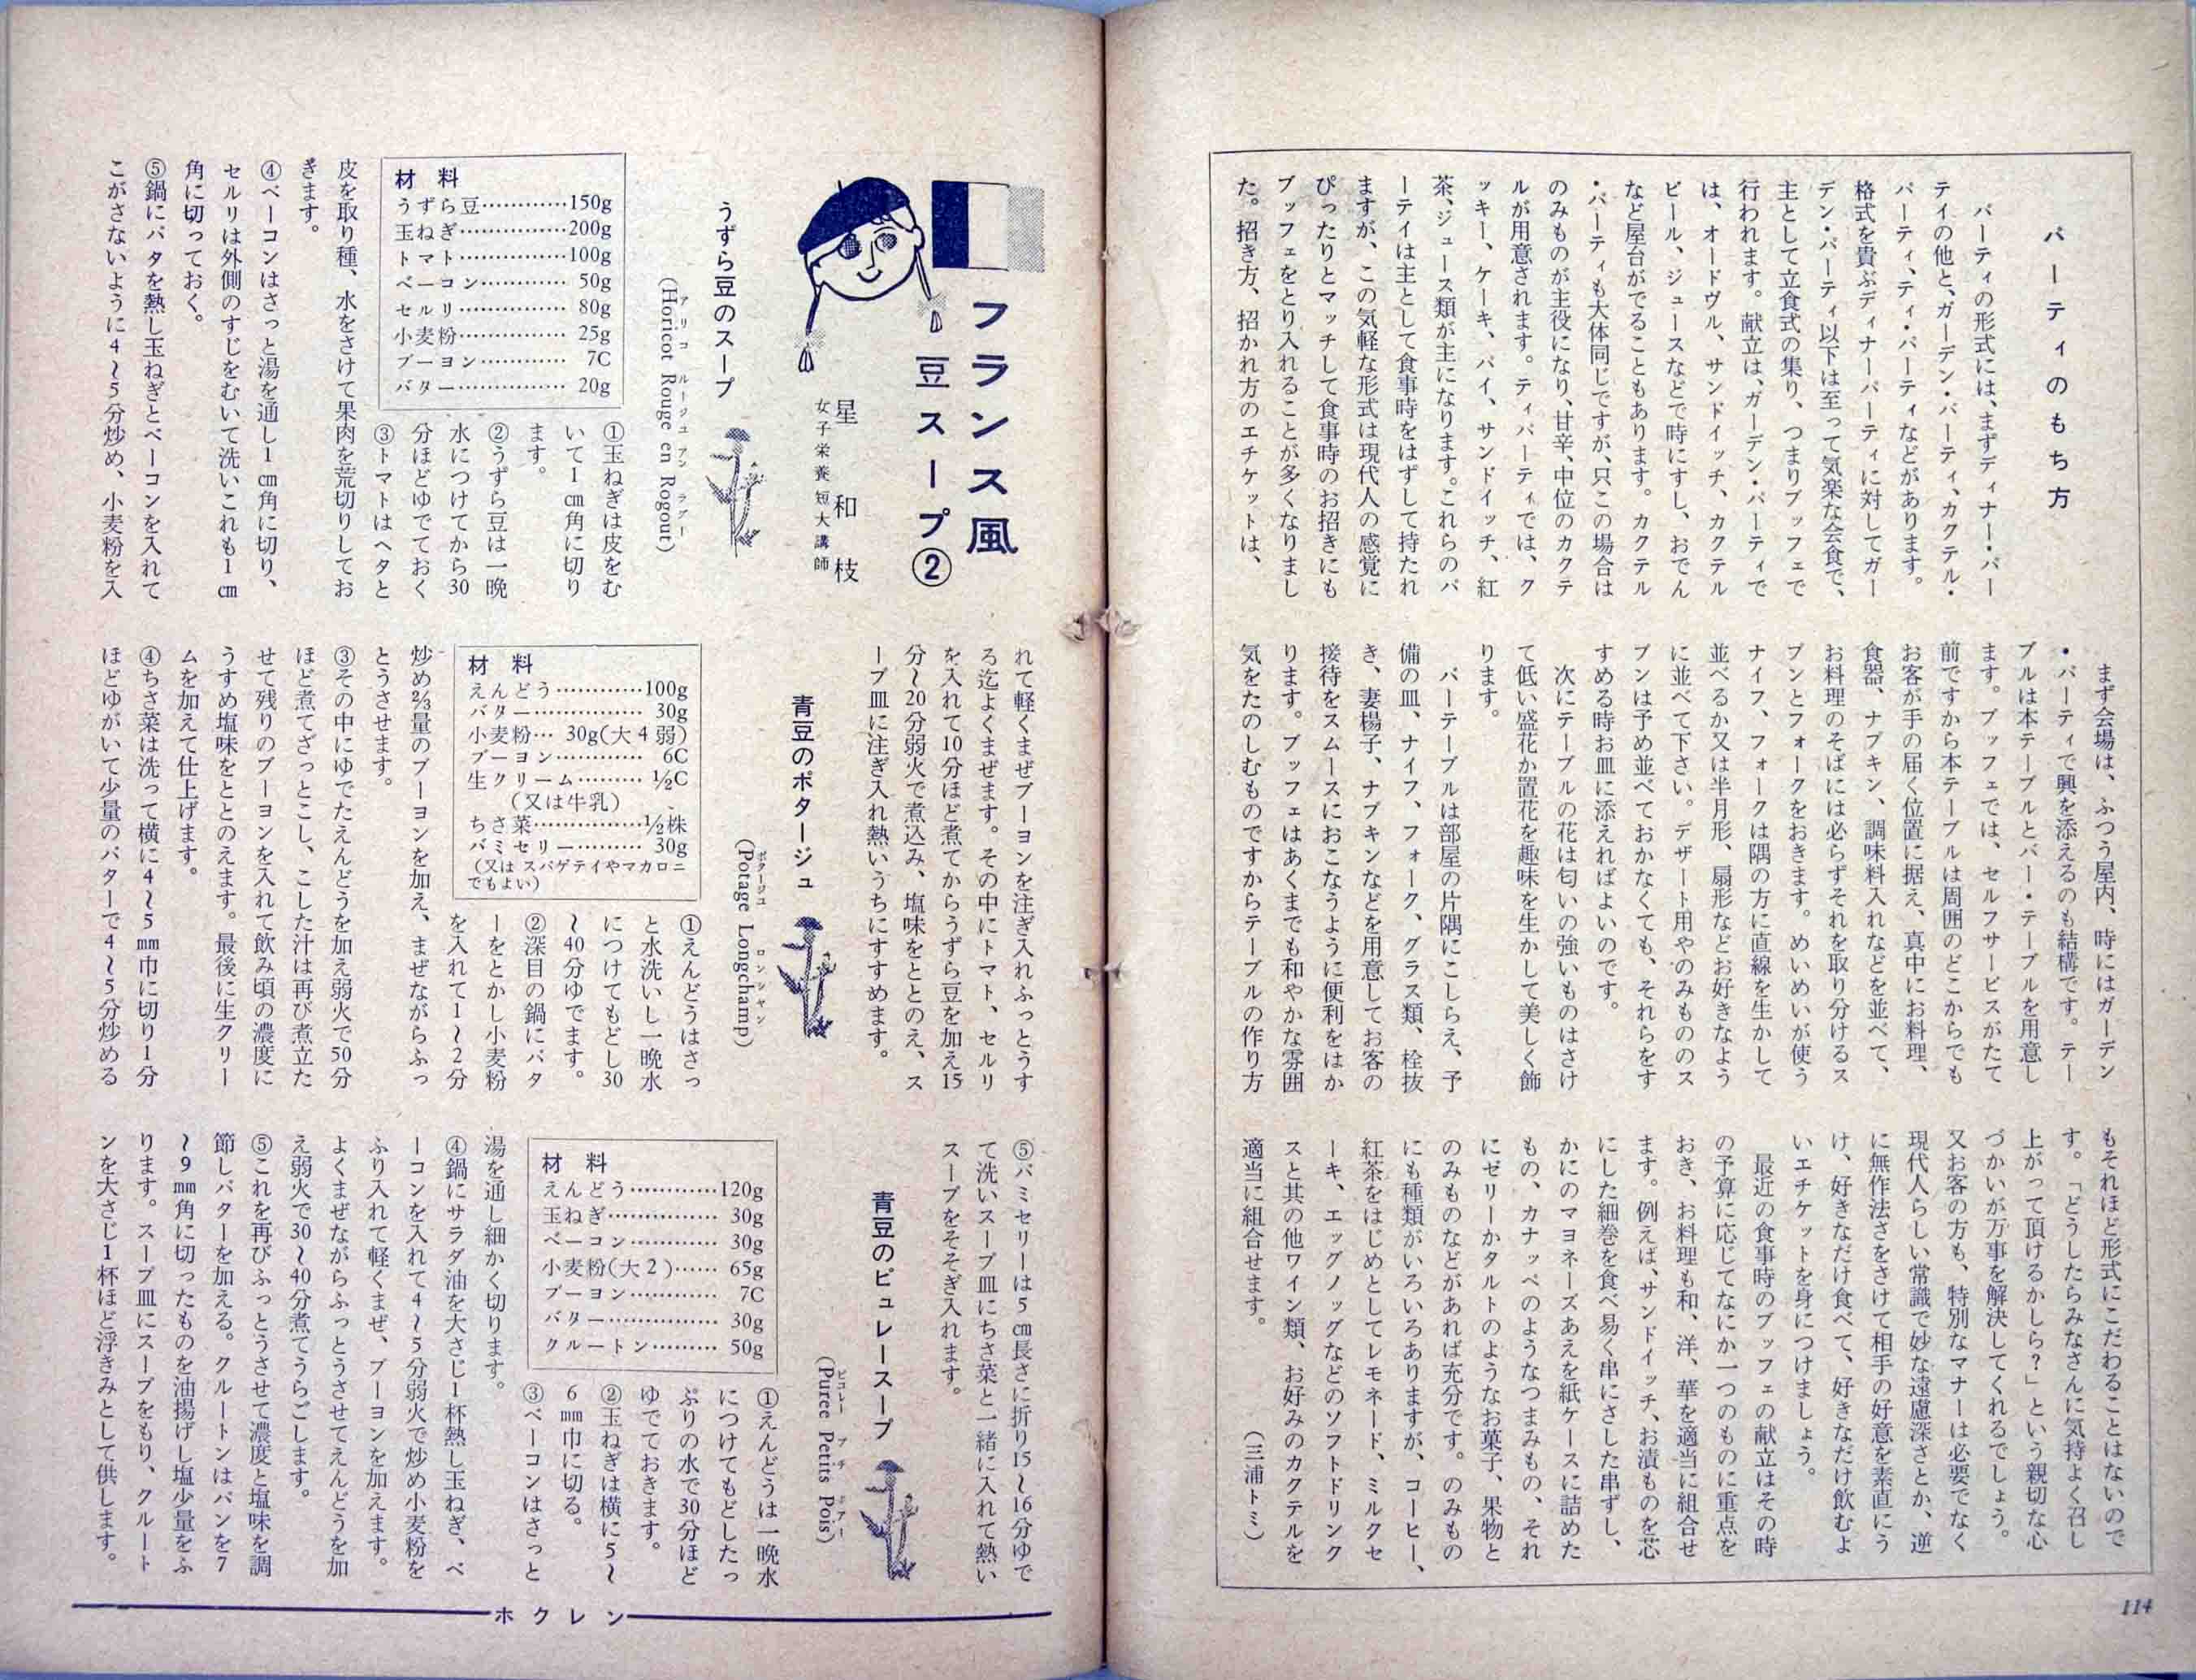 パーティのもち方
パーティの形式には、まずディナー・パー
ティの他と、ガーデン・パーティ、カクテル・
パーティ、ティ・パーティなどがあります。
格式を貴ぶディナーパーティに対してガー
デン・パーティ以下は至って気楽な会食で、
主として立食式の集り、つまりブッフェで
行われます。献立は、ガーデン・パーティで
は、オードヴル、サンドイッチ、カクテル
ビール、ジュースなどで時にすし、おでん
など屋台がでることもあります。カクテル
・パーティも大体同じですが、只この場合は
のみものが主役になり、甘辛、中位のカクテ
ルが用意されます。ティパーティでは、ク
ッキー、ケーキ、パイ、サンドイッチ、紅
茶、ジュース類が主になります。これらのパ
ーテイは主として食事時をはずして持たれ
ますが、この気軽な形式は現代人の感覚に
ぴったりとマッチして食事時のお招きにも
ブッフェをとり入れることが多くなりまし
た。招き方、招かれ方のエチケットは、
まず会場は、ふつう屋内、時にはガーデン
・パーティで興を添えるのも結構です。テー
ブルは本テーブルとバー・テーブルを用意し
ます。ブッフェでは、セルフサービスがたて
前ですから本テーブルは周囲のどこからでも
お客が手の届く位置に据え、真中にお料理、
食器、ナプキン、調味料入れなどを並べて、
お料理のそばには必らずそれを取り分けるス
プンとフォークをおきます。めいめいが使う
ナイフ、フォークは隅の方に直線を生かして
並べるか又は半月形、扇形などお好きなよう
に並べて下さい。デザート用やのみもののス
プンは予め並べておかなくても、それらをす
すめる時お皿に添えればよいのです。
次にテーブルの花は匂いの強いものはさけ
て低い盛花か置花を趣味を生かして美しく飾
ります。
バーテーブルは部屋の片隅にこしらえ、予
備の皿、ナイフ、フォーク、グラス類、栓抜
き、妻楊子、ナプキンなどを用意してお客の
接待をスムースにおこなうように便利をはか
ります。ブッフェはあくまでも和やかな雰囲
気をたのしむものですからテーブルの作り方
もそれほど形式にこだわることはないので
す。「どうしたらみなさんに気持よく召し
上がって頂けるかしら?」という親切な心
づかいが万事を解決してくれるでしょう。
又お客の方も、特別なマナーは必要でなく
現代人らしい常識で妙な遠慮深さとか、逆
に無作法さをさけて相手の好意を素直にう
け、好きなだけ食べて、好きなだけ飲むよ
いエチケットを身につけましょう。
最近の食事時のブッフェの献立はその時
の予算に応じてなにか一つのものに重点を
おき、お料理も和、洋、華を適当に組合せ
ます。例えば、サンドイッチ、お漬ものを芯
にした細巻を食べ易く串にさした串ずし、
かにのマヨネーズあえを紙ケースに詰めた
もの、カナッペのようなつまみもの、それ
にゼリーかタルトのようなお菓子、果物と
のみものなどがあれば充分です。のみもの
にも種類がいろいろありますが、コーヒー、
紅茶をはじめとしてレモネード、ミルクセ
ーキ、エッグノッグなどのソフトドリンク
スと其の他ワイン類、お好みのカクテルを
適当に組合せます。
(三浦トミ)
114
フランス風
豆スープ②
星 和 枝
女子栄養短大講師
うずら豆のスープ
アリコ ルージユ アン ラグー
(Horicot Rouge en Rogout)
材 料
うずら豆…………150g
玉ねぎ……………200g
トマト……………100g
ベーコン………… 50g
セルリ…………… 80g
小麦粉…………… 25g
ブーヨン………… 7C
バター…………… 20g
①玉ねぎは皮をむ
いて1cm角に切り
ます。
②うずら豆は一晩
水につけてから30
分ほどゆでておく
③トマトはヘタと
皮を取り種、水をさけて果肉を荒切りしてお
きます。
④ベーコンはさっと湯を通し1cm角に切り、
セルリは外側のすじをむいて洗いこれも1cm
角に切っておく。
⑤鍋にバタを熱し玉ねぎとベーコンを入れて
こがさないように4~5分炒め、小麦粉を入
れて軽くまぜブーヨンを注ぎ入れふっとうす
る迄よくまぜます。その中にトマト、セルリ
を入れて10分ほど煮てからうずら豆を加え15
分~20分弱火で煮込み、塩味をととのえ、ス
ープ皿に注ぎ入れ熱いうちにすすめます。
青豆のポタージュ
ポタージユ ロンシヤン
(Potage Longchamp)
材 料
えんどう…………100g
バター…………… 30g
小麦粉… 30g(大4弱)
ブーヨン………… 6C
生クリーム……… ½C
(又は牛乳)
ちさ菜……………½株
バミセリー……… 30g
(又はスパゲテイやマカロニ
でもよい)
①えんどうはさっ
と水洗いし一晩水
につけてもどし30
~40分ゆでます。
②深目の鍋にバタ
ーをとかし小麦粉
を入れて1~2分
炒め⅔量のブーヨンを加え、まぜながらふっ
とうさせます。
③その中にゆでたえんどうを加え弱火で50分
ほど煮てざっとこし、こした汁は再び煮立た
せて残りのブーヨンを入れて飲み頃の濃度に
うすめ塩味をととのえます。最後に生クリー
ムを加えて仕上げます。
④ちさ菜は洗って横に4~5mm巾に切り1分
ほどゆがいて少量のバターで4~5分炒める
⑤バミセリーは5cm長さに折り15~16分ゆで
て洗いスープ皿にちさ菜と一緒に入れて熱い
スープをそそぎ入れます。
青豆のピュレースープ
ピユレー プチ ポアー
(Puree Petits Pois)
材 料
えんどう…………120g
玉ねぎ…………… 30g
ベーコン………… 30g
小麦粉(大2)…… 65g
ブーヨン………… 7C
バター…………… 30g
クルートン……… 50g
①えんどうは一晩水
につけてもどしたっ
ぷりの水で30分ほど
ゆでておきます。
②玉ねぎは横に5~
6mm巾に切る。
③ベーコンはさっと
湯を通し細かく切ります。
④鍋にサラダ油を大さじ1杯熱し玉ねぎ、ベ
ーコンを入れて4~5分弱火で炒め小麦粉を
ふり入れて軽くまぜ、ブーヨンを加えます。
よくまぜながらふっとうさせてえんどうを加
え弱火で30~40分煮てうらごします。
⑤これを再びふっとうさせて濃度と塩味を調
節しバターを加える。クルートンはパンを7
~9mm角に切ったものを油揚げし塩少量をふ
ります。スープ皿にスープをもり、クルート
ンを大さじ1杯ほど浮きみとして供します。
ホクレン